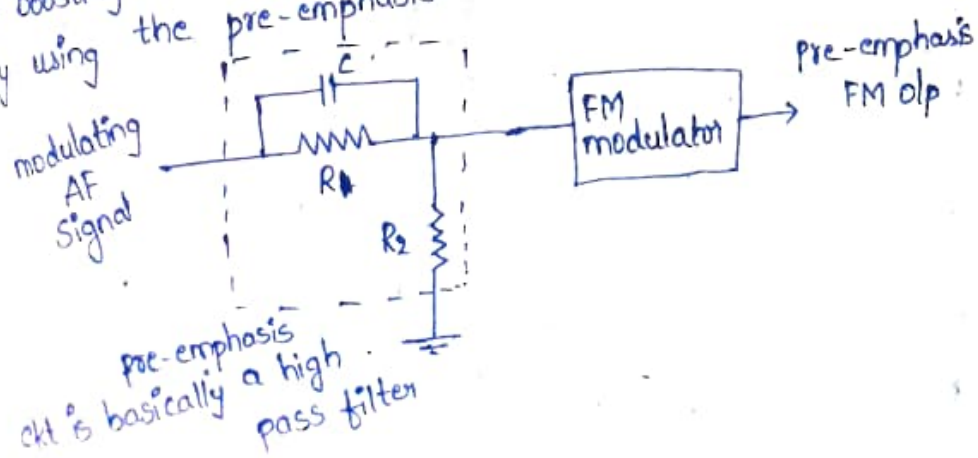 y using the pre-emphasis
modulating
AF
signal
C
R
R2
FM
modulator
pre-emphasis
FM o/p :
pre-emphasis
ckt is basically a high
pass filter